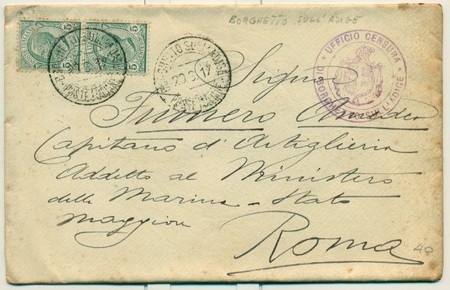 BORGHETTO SULL'ADIGE
UFFICIO CENSURA
BORGHETTO SULL'ADIGE
20 2 17
Signor
Amedeo
Capitano d'Artiglieria
Addetto al Ministero
della Marina - Stato
Maggiore
Roma
48